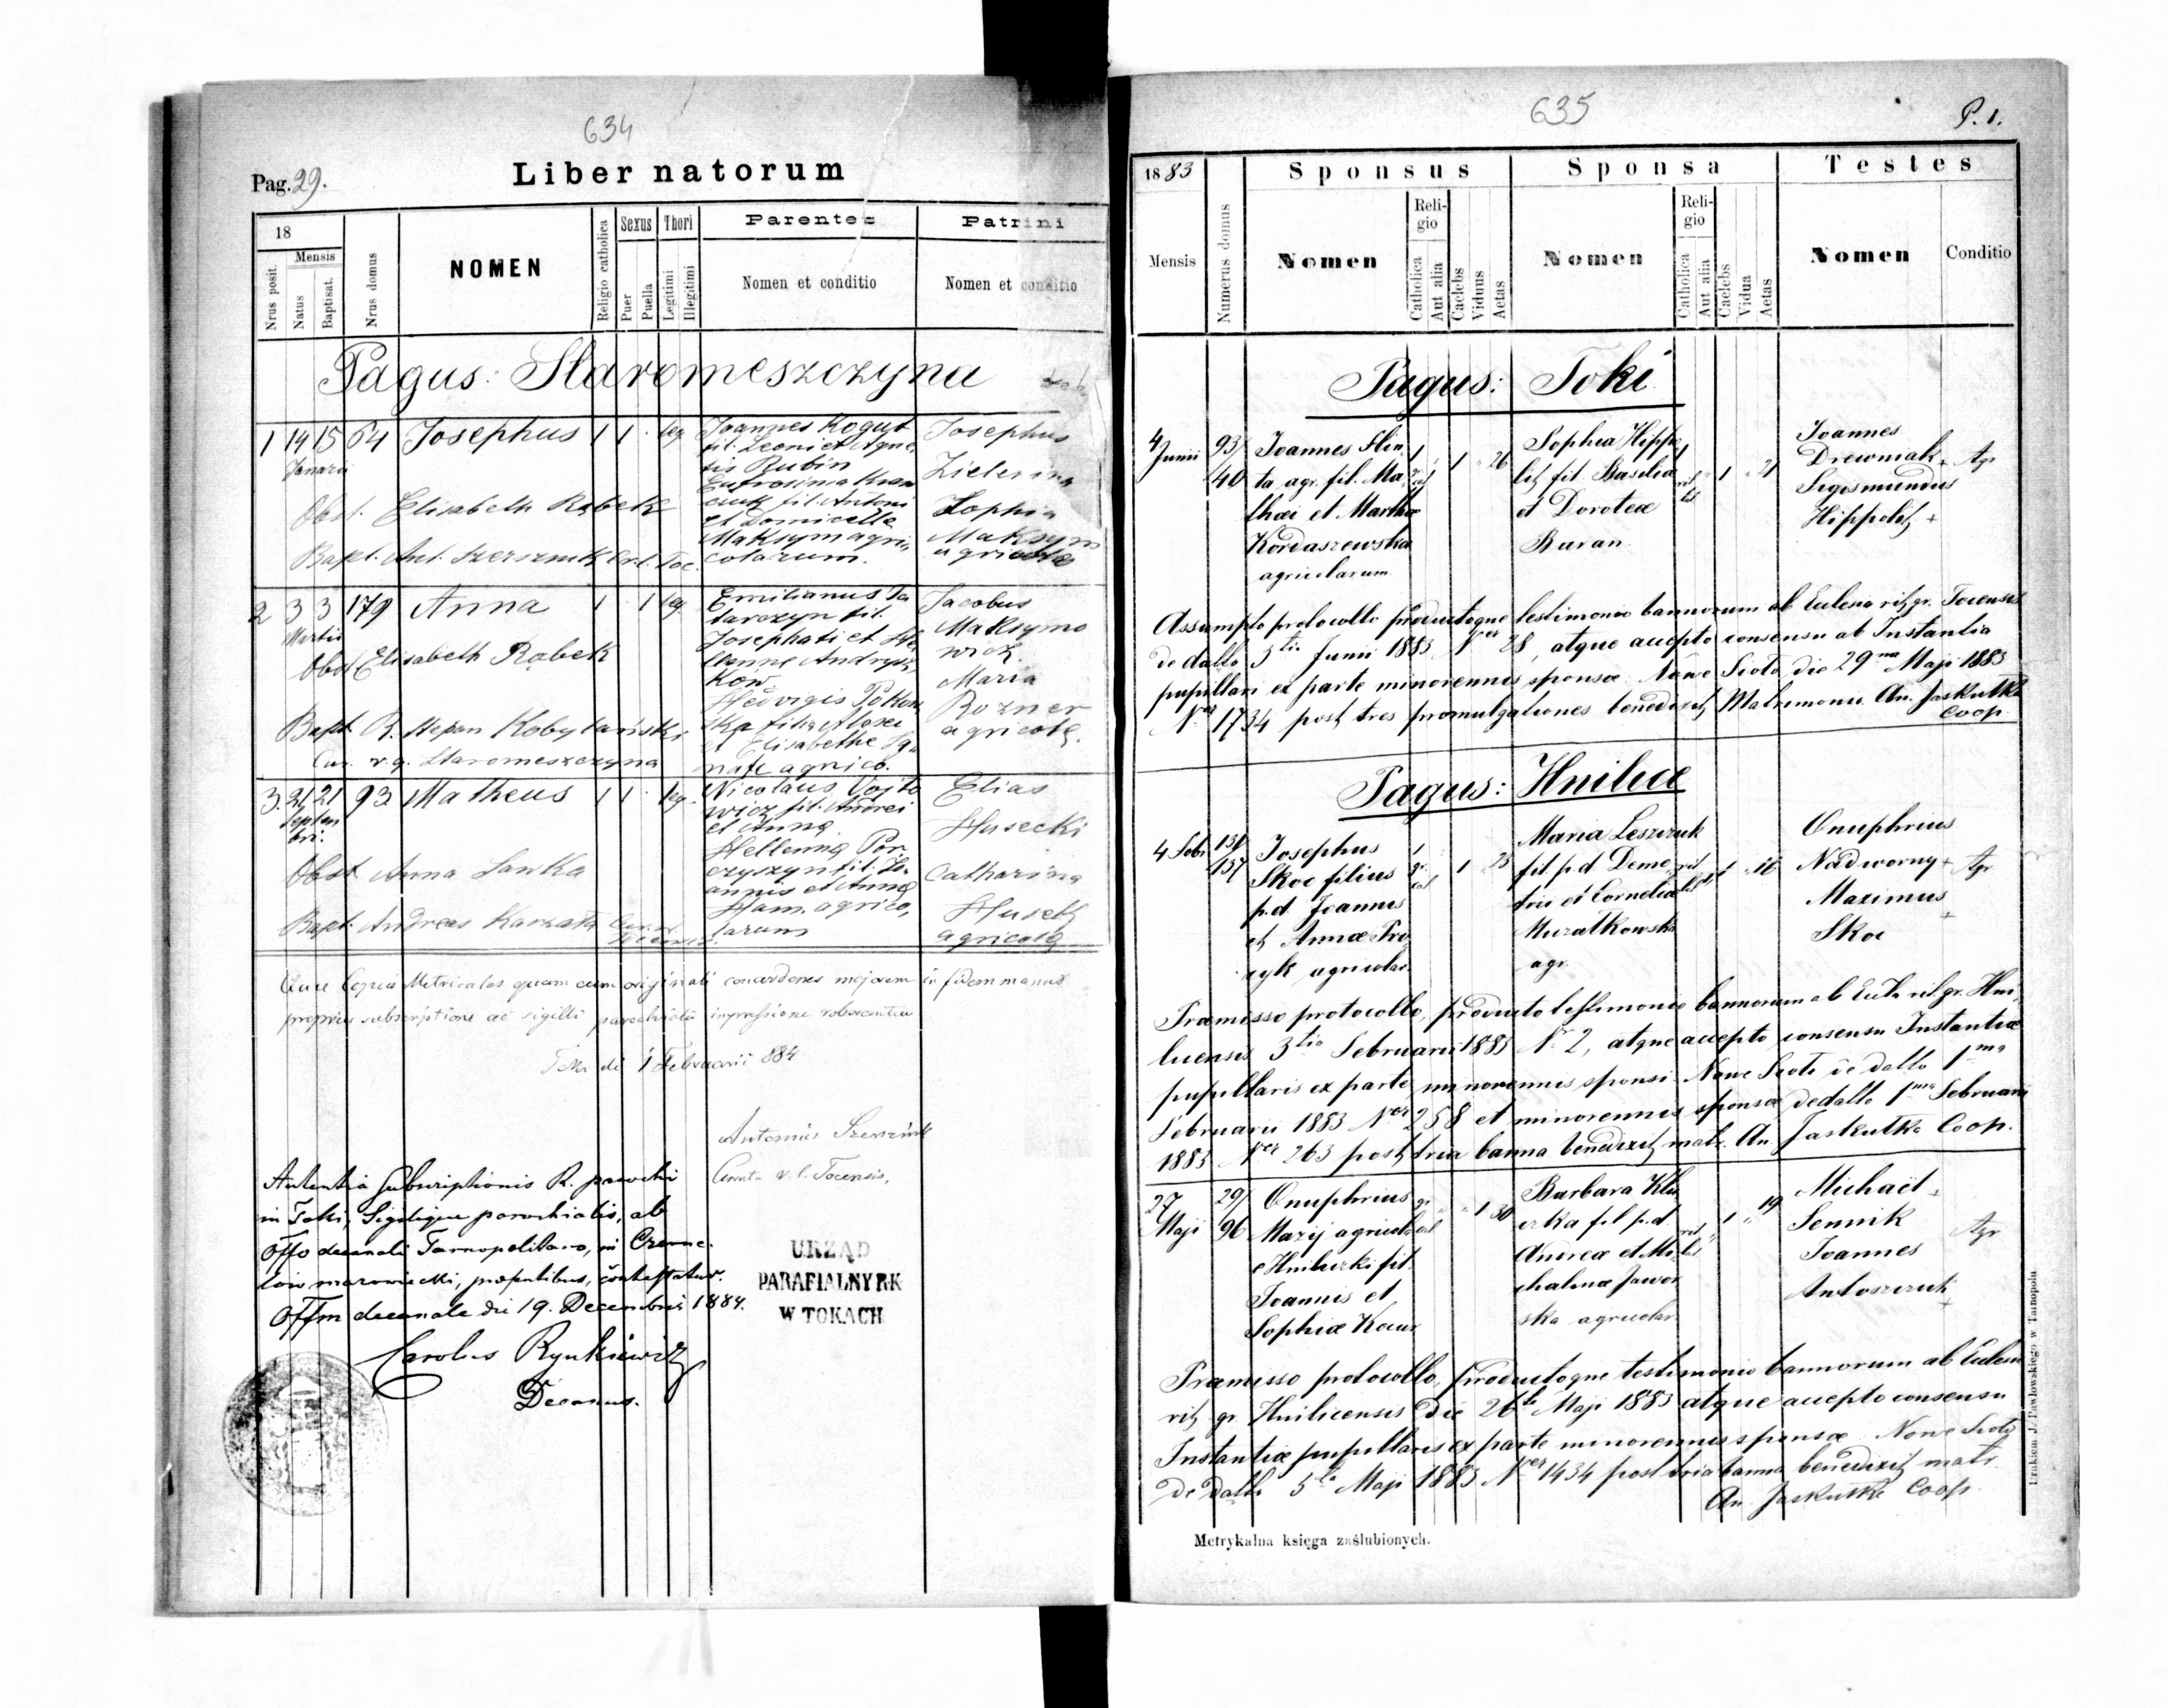 634
Pag. 29.
Liber natorum
18
Mensis
Nrus posit.
Natus
Baptisat.
Nrus domus
NOMEN
Religio catholica
Sexus
Puer
Puella
Thori
Legitimi
Illegitimi
Parentes
Nomen et conditio
Patrini
Nomen et conditio
Pagus: Staromeszczyna
1 14 15 64 Josephus 1 1 leg
Januarii
Joannes Kogut
fil. Leoni et Agne
tis Rubin
Eufrosinia
fil. Antoni
et Domicelle
Maksym agri
colarum.
Josephus
Zophia
Maksym
agricolae
Obst. Elisabeth Rąbek
Bapt. Ant. Szersznik Toc.
2 3 3 179 Anna 1 1 leg
Martii
Emilianus Ta
tarczyn fil.
Josephati et He
lenne Andrysz
kow.
Hedvigis
et Elisabethe
agrico.
Jacobus
Maksymo
wicz.
Maria
Rozner
agricolę.
Obst Elisabeth Rąbek
Bapt. R. Stepan Kobylański
Cur. r.g. Staromeszczyna
3. 21 21 93 Matheus 1 1 leg.
Septem
bri.
Nicolaus Vojto
wicz fil. Andrei
et Anna
Hellenna Por
czyszyn fil. Jo
annis et Anna
Ham. agrico,
larum
Elias
Husecki
Catharina
Husecki
agricolę
Obst Anna Sawka
Bapt. Andreas Karzata
Copia Metricales quam cum originali concordenes majorem in fidem manus
propriae subscriptione ac sigilli parochialis impressione roborantur
1 Februarii 884
Antonius Szersznik
Curatus r. l. Tocensis,
Autentia Subscriptionis R. parochi
in Toki, Sigilique parochialis, ab
Offo decanali Tarnopoliano, in Czerne
low mazowiecki, praesentibus, contestatur.
Offm decanale die 19. Decembris 1884.
Carolus Rynkiewicz
Decanus.
URZĄD
PARAFIALNY RK
W TOKACH
635
P. 1.
1883
Mensis
Numerus domus
Sponsus
Nomen
Religio
Catholica
Aut alia
Caelebs
Viduus
Aetas
Sponsa
Nomen
Religio
Catholica
Aut alia
Caelebs
Vidua
Aetas
Testes
Nomen
Conditio
Pagus: Toki
4 Junii
93/40
Joannes Slin
ta agr. fil. Ma
thaei et Marthae
Kordaszewska
agricolarum
1 26
Sophia Hippo
litz fil. Basiliae
et Doroteae
Buran
1 21
Joannes
Drewniak +
Sigismundus
Hippolitz +
Agr
Assumpto protocollo productoque testimonio bannorum ab Eclesia rit. gr. Tocensis
de datto 3tia Junii 1883 Nro 28, atque accepto consensu ab Instantia
pupillari ex parte minorennis sponsae Nowe Sioto die 29na Maji 1883
Nro 1734 post tres promulgationes benedixit Matrimonio An. Jaskutka
Coop.
Pagus: Hnilice
4 Febr
137/157
Josephus
Skoc filius
p.d. Joannis
et Annae Pro
zyk agricolar.
1 25
Maria Leszczuk
fil. p.d. Deme
trii et Corneliae
Muratkowska
agr.
1 16
Onuphrius
Nadworny +
Maximus
Skoc +
Agr
Praemisso protocollo, producto testimonio bannorum ab Eccla rit. gr. Hni
licensis 3tia Februarii 1883 Nr 2, atque accepto consensu Instantiae
pupillaris ex parte minorennis sponsi Nowe Sioto de datto 1ma
Februarii 1883 Nro 258 et minorennis sponsae dedatto 1ma Februarii
1883 Nro 263 post tria banna benedixit matr. An Jaskutka Coop.
27 Maji
29/96
Onuphrius
Mazij agricola
Hnilicki fil
Joannis et
Sophiae Kauz
1 30
Barbara Klu
czka fil p.d.
Andreae et Mi
chalinae Jawor
ska agricolar
1 19
Michaël +
Sennik
Joannes
Antoszczuk +
Agr
Praemisso protocollo, productoque testimonio bannorum ab Eclesia
rit. gr. Hnilicensis die 26ta Maji 1883 atque accepto consensu
Instantiae pupillaris ex parte minorennis sponsae Nowe Sioto
de datto 5ta Maji 1883 Nro 1434 post tria banna benedixit matr.
An. Jaskutka Coop.
Metrykalna księga zaślubionych.
Drukiem J. Pawłowskiego w Tarnopolu